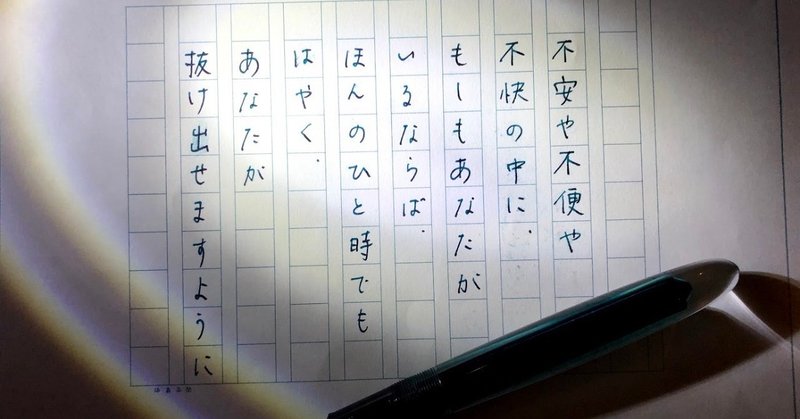 不安や不便や
不快の中に、
もしもあなたが
いるならば、
ほんのひと時でも
はやく、
あなたが
抜け出せますように